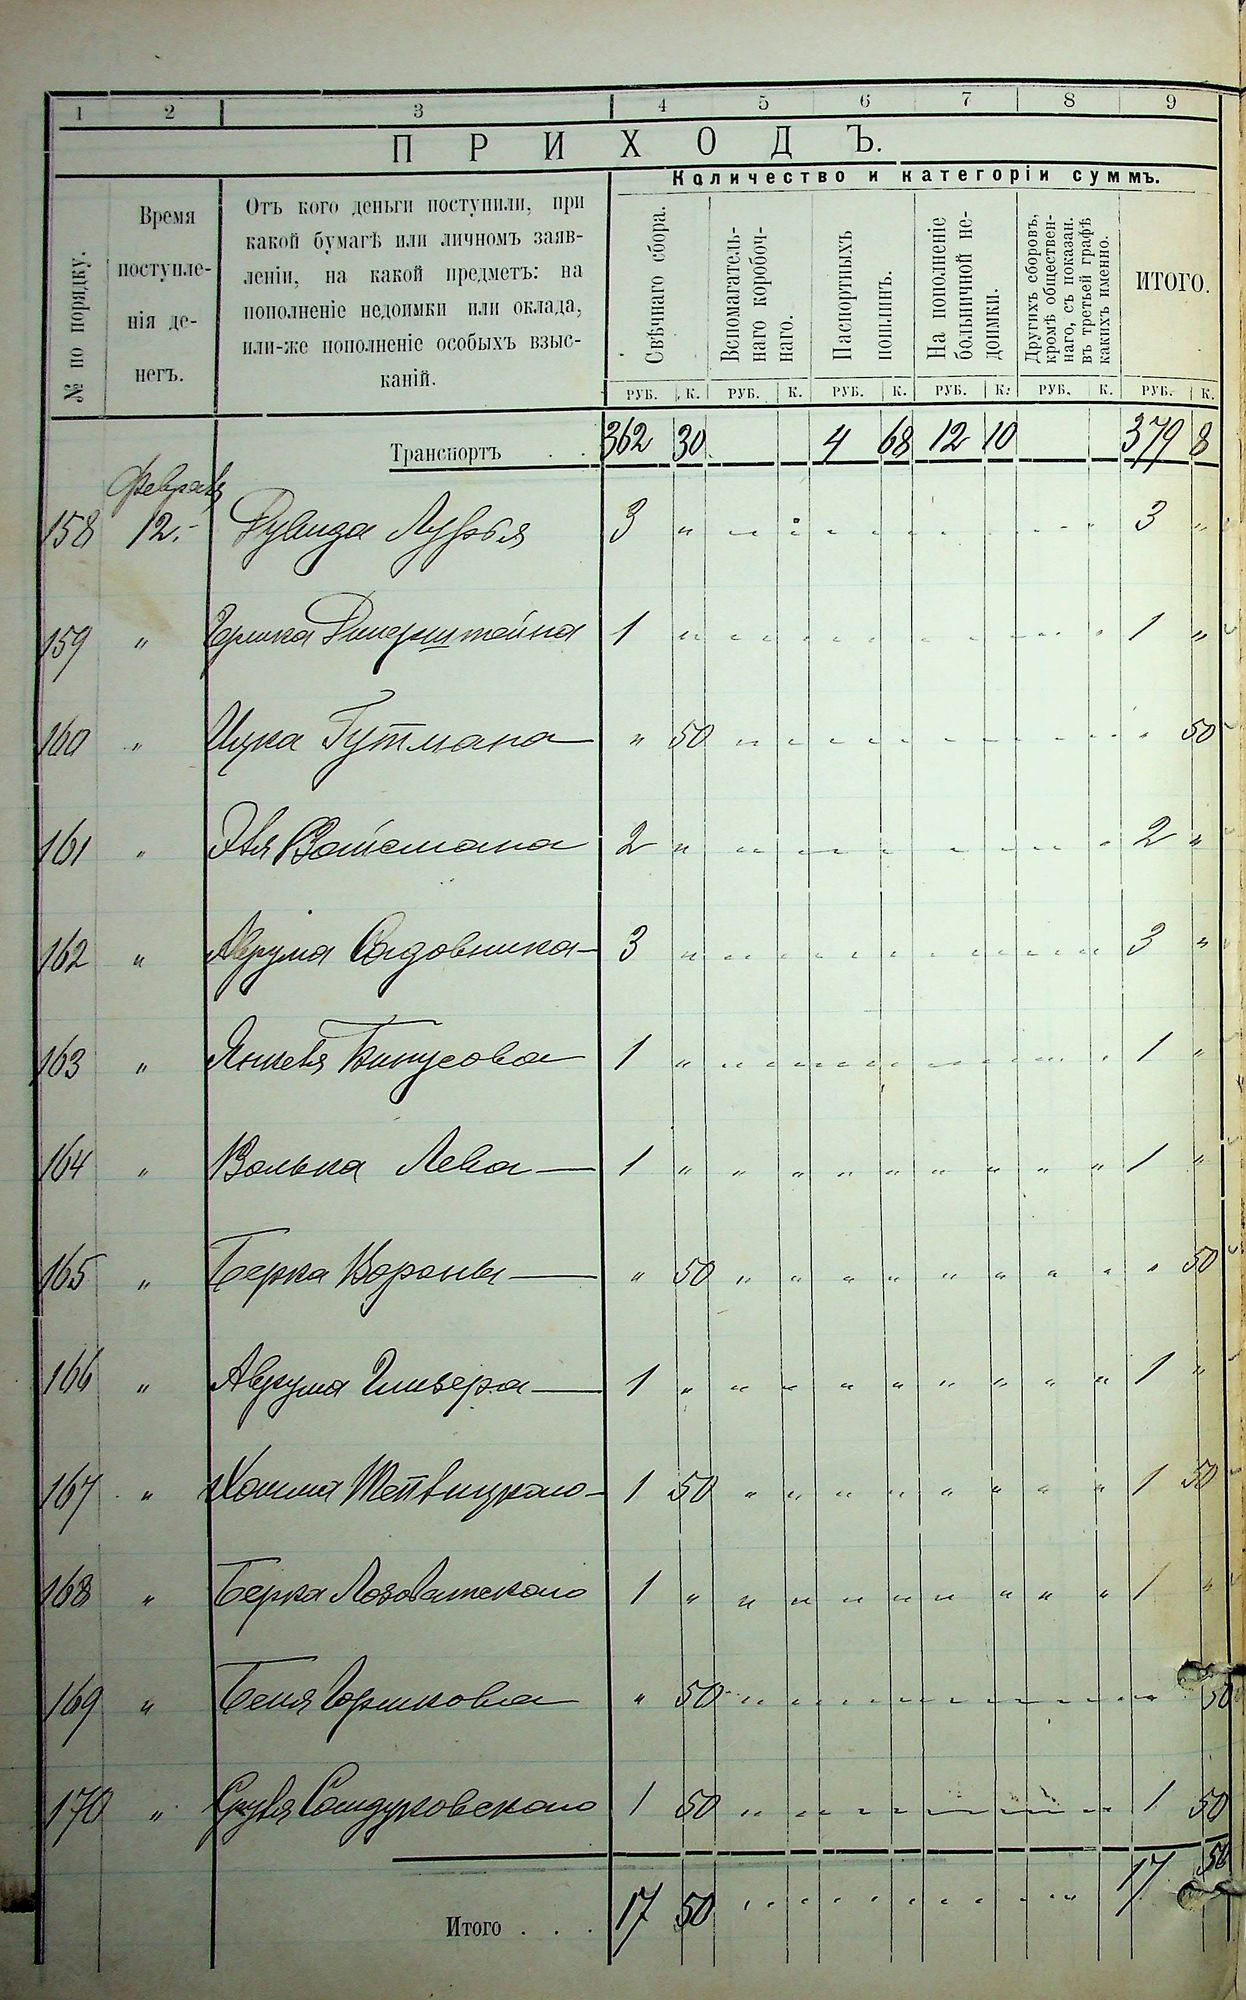 1 2 3 4 5 6 7 8 9
ПРИХОДЪ.
Количество и категоріи суммъ.
№ по порядку.
Время
поступле-
нія де-
негъ.
Отъ кого деньги поступили, при
какой бумагѣ или личномъ заяв-
леніи, на какой предметъ: на
пополненіе недоимки или оклада,
или-же пополненіе особыхъ взыс-
каній.
Свѣчнаго сбора.
Вспомагатель-
наго коробоч-
наго.
Паспортныхъ
пошлинъ.
На пополненіе
больничной не-
доимки.
Другихъ сборовъ,
кромѣ обществен-
наго, съ показан.
въ третьей графѣ
какихъ именно.
ИТОГО.
РУБ. К. РУБ. К. РУБ. К. РУБ. К. РУБ. К. РУБ. К.
Транспортъ . . 362 30 4 68 12 10 379 8
Февраля
158 12. Лурья 3 „ 3 „
159 „ 1 „ 1 „
160 „ Ицка Гутмана „ 50 „ 50
161 „ Вайсмана 2 „ 2 „
162 „ Аврума Садовника 3 „ 3 „
163 „ 1 „ 1 „
164 „ Волька Лева 1 „ „ „ „ „ „ „ „ „ 1 „
165 „ Берка Вороны „ 50 „ „ „ „ „ „ „ „ „ 50
166 „ Аврума 1 „ „ „ „ „ „ „ „ „ 1 „
167 „ 1 50 „ „ „ „ „ „ „ „ 1 50
168 „ Берка Лозоватского 1 „ „ „ „ „ „ „ „ „ 1 „
169 „ Беня Гершкова „ 50 „ 50
170 „ Сруля Сандуковского 1 50 1 50
Итого . . . 17 50 17 50